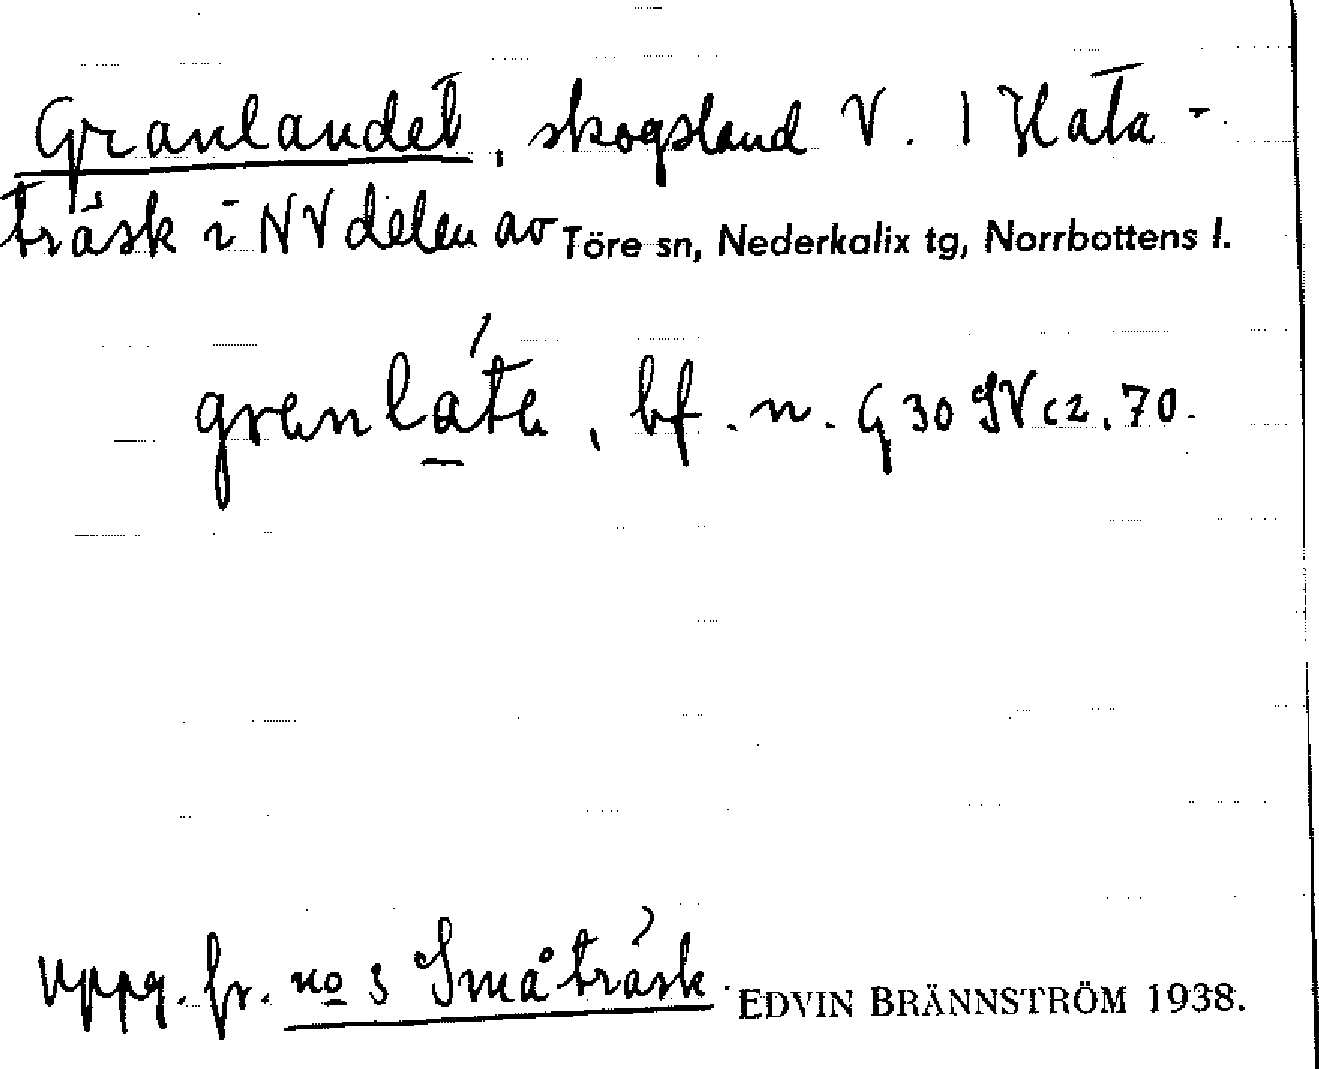 Granlandet, skogsland V. l Hata-
träsk i NV delen av Töre sn, Nederkalix tg, Norrbottens l.
granlátᴀ, bf. n. G 30 SV c2. 70.
Uppg. fr. no 3 Småträsk. EDVIN BRÄNNSTRÖM 1938.